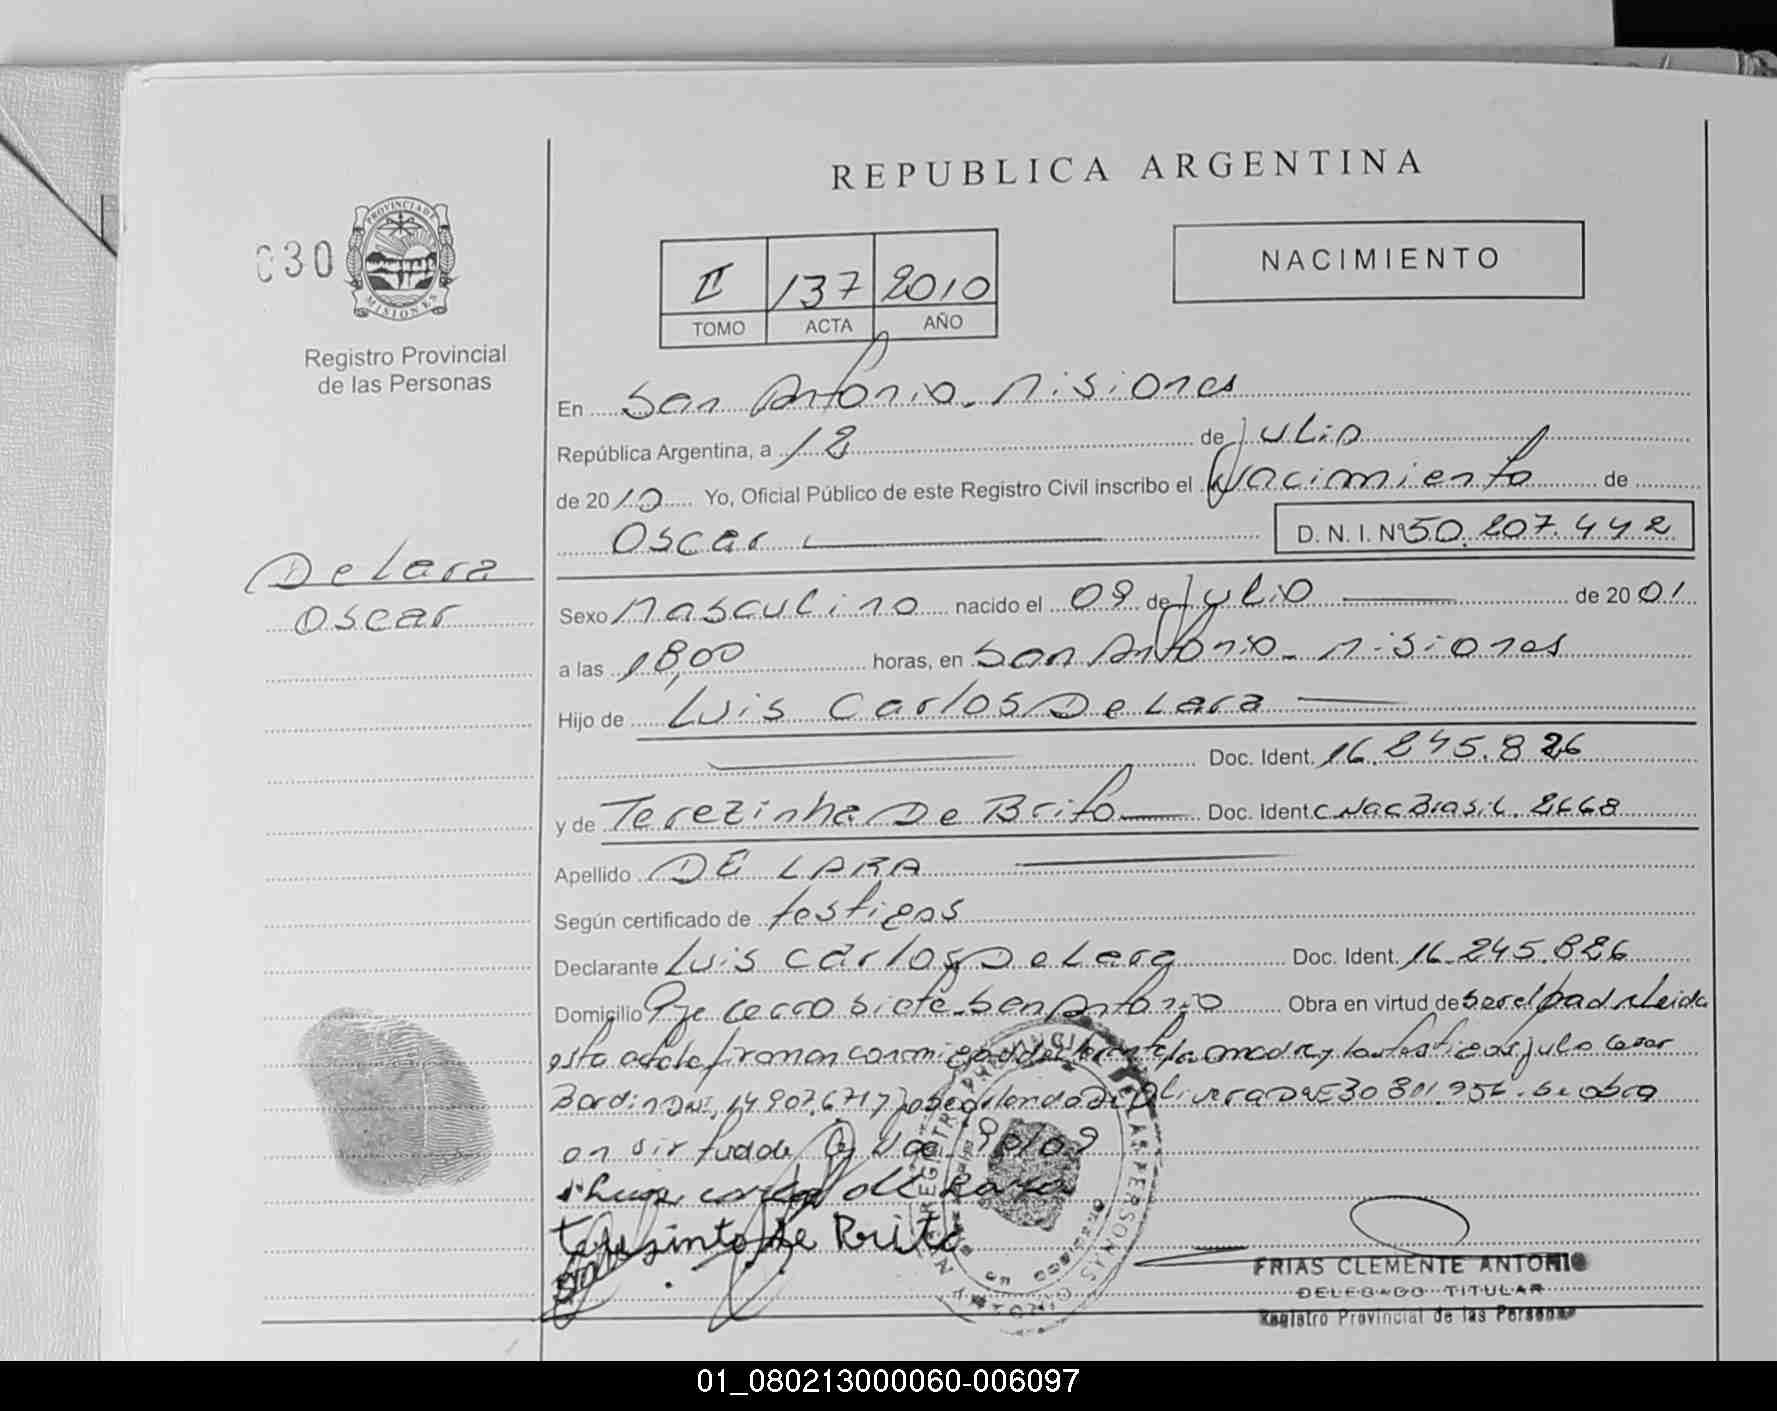 REPUBLICA ARGENTINA
030
PROVINCIA DE
MISIONES
Registro Provincial
de las Personas
II 137 2010
TOMO ACTA AÑO
NACIMIENTO
En San Antonio - Misiones
República Argentina, a 12 de Julio
de 2010 Yo, Oficial Público de este Registro Civil inscribo el Nacimiento de
Oscar D. N. I. Nº 50.207.442
De Lara
Oscar
Sexo Masculino nacido el 09 de Julio de 2001
a las 18,00 horas, en San Antonio - Misiones
Hijo de Luis Carlos De Lara
Doc. Ident. 16.245.826
y de Terezinha De Brito Doc. Ident. C Nac Brasil. 2668
Apellido DE LARA
Según certificado de testigos
Declarante Luis Carlos De Lara Doc. Ident. 16.245.826
Domicilio Pje Cerro Siete San Antonio Obra en virtud de ser el pad Leida
esta acta la firman conmigo el declarante la madre y los testigos Julio Cesar
Bordin DNI. 14.907.671 y de Olivera DNI 30.801.956. Se obra
en virtud de
de Lara
de Brito
FRIAS CLEMENTE ANTONIO
DELEGADO TITULAR
Registro Provincial de las Personas
01_080213000060-006097